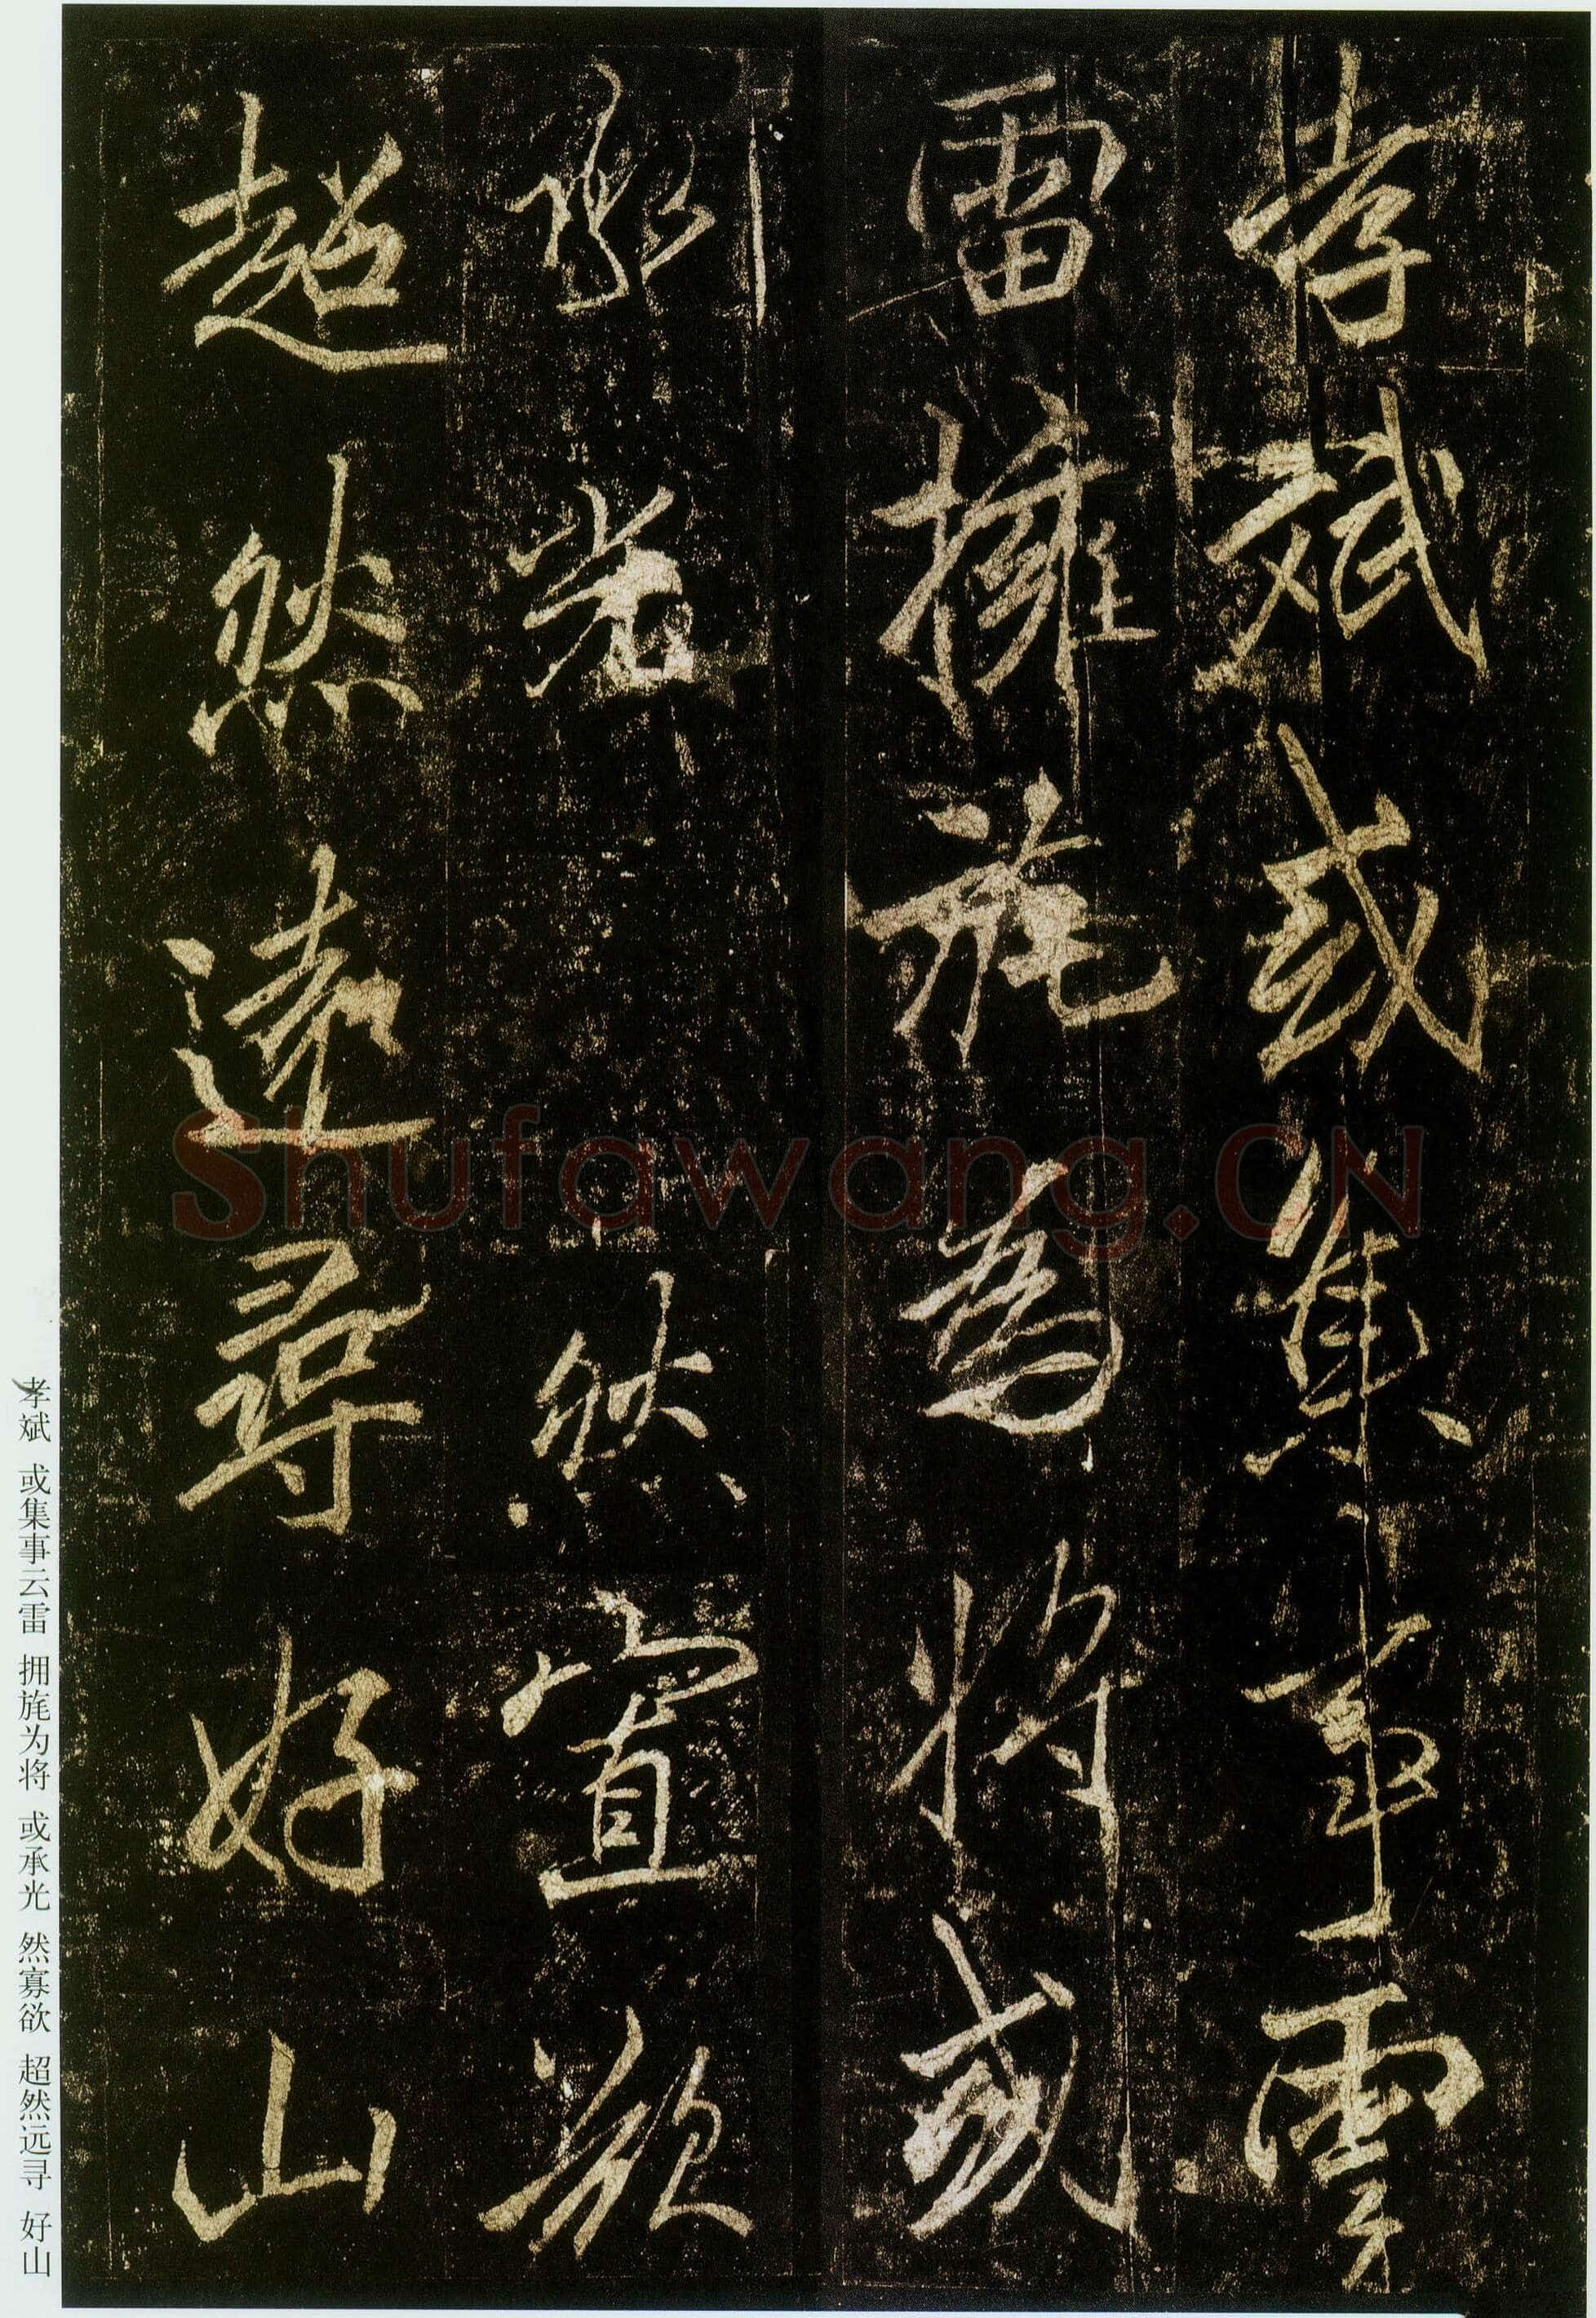 孝斌或集事雲
雷擁旄為將或
承光 然寡欲
超然遠尋好山
孝斌 或集事云雷 拥旄为将 或承光 然寡欲 超然远寻 好山
Shufawang.CN